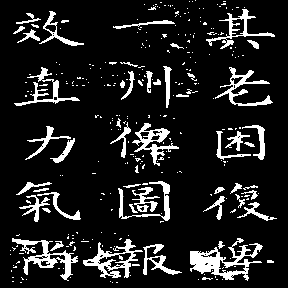 其老困復俾
一州俾圖報
效直力氣尚